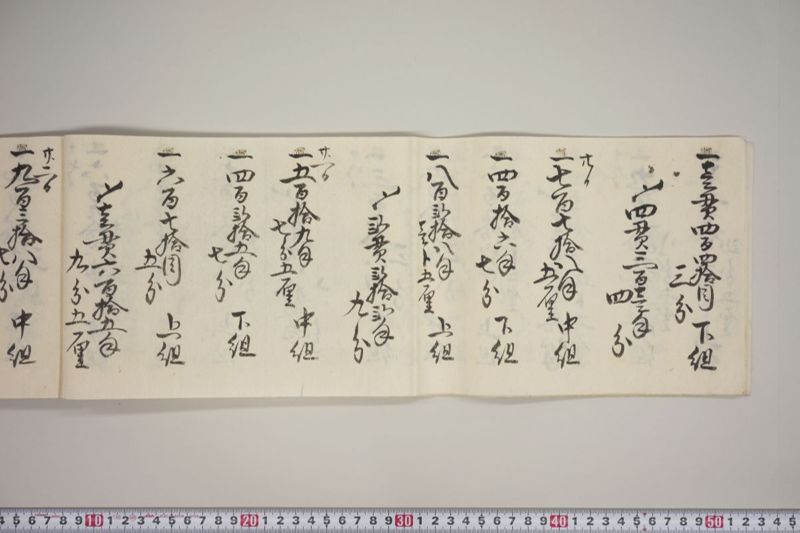 一壱貫四百四拾目 下組
三分
〆四貫三百
四分
廿日
一七百七拾八匁 中組
五厘
一四百拾六匁 下組
七分
一八百弐拾八匁 上組
壱分五厘
〆弐貫弐拾弐匁
九分
廿一日
一五百拾九匁 中組
七分五厘
一四百弐拾五匁 下組
七分
一六百七拾目 上組
五分
〆壱貫六百拾五匁
九分五厘
廿二日
一九百三拾八匁 中組
七分
4 5 6 7 8 9 10 1 2 3 4 5 6 7 8 9 20 1 2 3 4 5 6 7 8 9 30 1 2 3 4 5 6 7 8 9 40 1 2 3 4 5 6 7 8 9 50 1 2 3 4 5